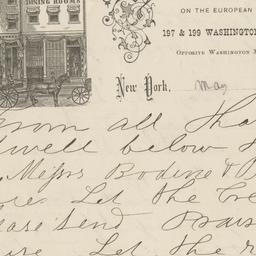 DINING ROOMS
ON THE EUROPEAN
197 & 199 WASHINGTON
OPPOSITE WASHINGTON M
New York, May
from all tha
dwell below th
Messrs Bodine &
Let the Cre
ease send
Let the r